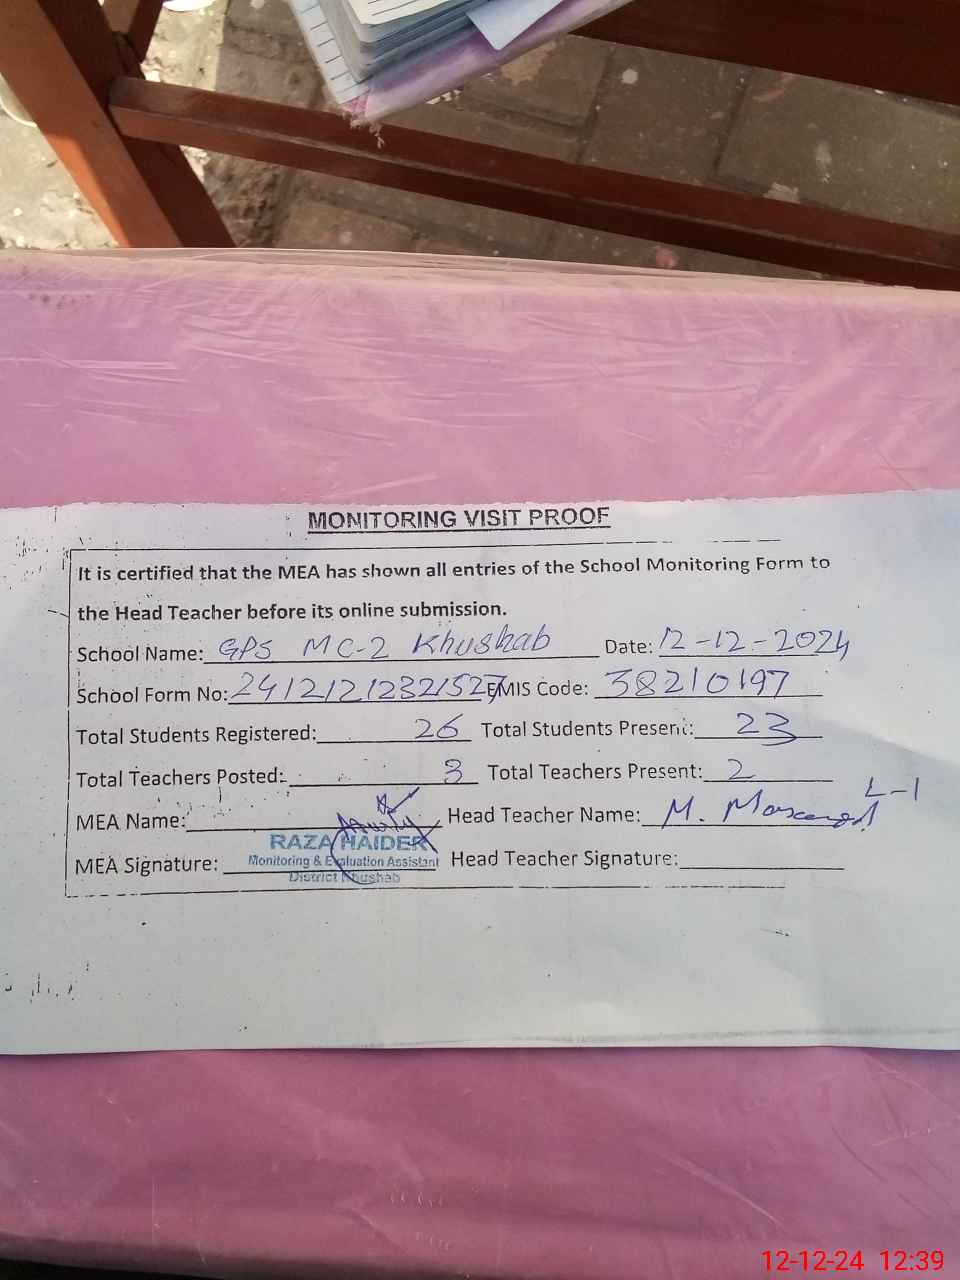 MONITORING VISIT PROOF
It is certified that the MEA has shown all entries of the School Monitoring Form to
the Head Teacher before its online submission.
School Name: GPS MC-2 Khushab Date: 12-12-2024
School Form No: 24121212321527 EMIS Code: 38210197
Total Students Registered: 26 Total Students Present: 23
Total Teachers Posted: 3 Total Teachers Present: 2
L-1
MEA Name: Head Teacher Name: M.
RAZA HAIDER
MEA Signature: Monitoring & Evaluation Assistant Head Teacher Signature:
District Khushab
12-12-24 12:39